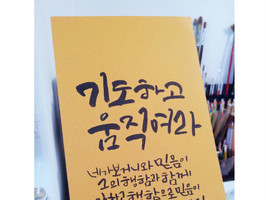 기도하고
움직여라
네가 보거니와 믿음이
그의 행함과 함께
일하고 행함으로 믿음이